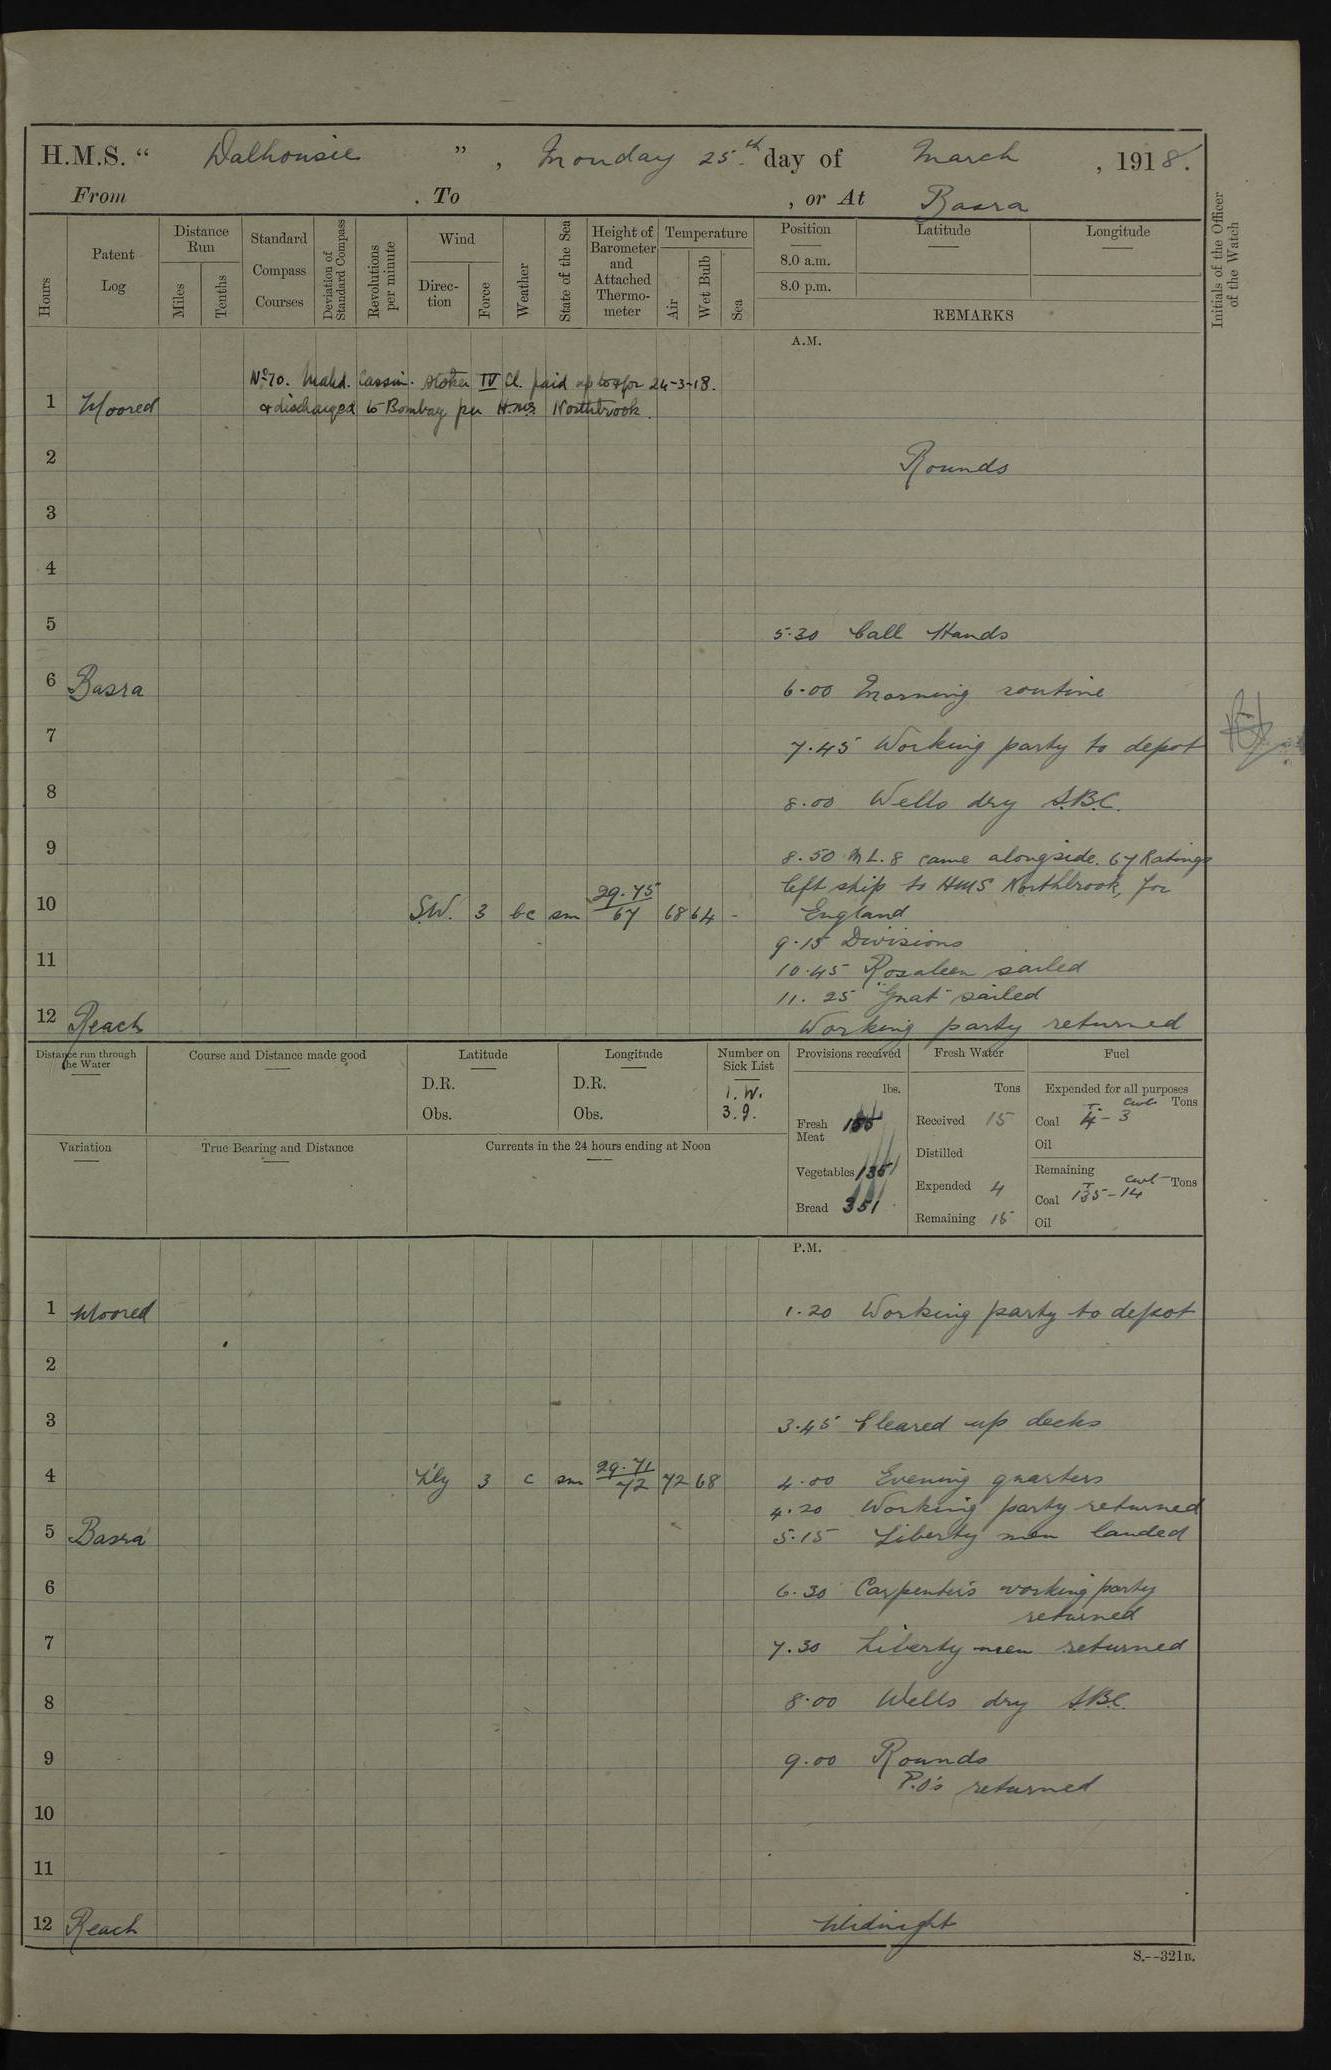 H.M.S. “ Dalhousie ” , Monday 25.th day of March , 1918.
From . To , or At Basra
Hours
Patent Log
Distance Run
Miles
Tenths
Standard Compass Courses
Deviation of Standard Compass
Revolutions per minute
Wind
Direction
Force
Weather
State of the Sea
Height of Barometer and Attached Thermometer
Temperature
Air
Wet Bulb
Sea
Position
8.0 a.m.
8.0 p.m.
Latitude
Longitude
REMARKS
Initials of the Officer of the Watch
A.M.
No 70. Mahd. Cassim. Stoker IV Cl. paid up to & for 24-3-18.
1 Moored & discharged to Bombay per H.M.S. Northbrook.
2 Rounds
3
4
5 5.30 Call Hands
6 Basra 6.00 Morning routine
7 7.45 Working party to depot
8 8.00 Wells dry S.B.C.
9 8.50 M L. 8 came alongside. 67 Ratings
left ship to HMS Northbrook, for
10 SW. 3 bc sm 29.75/67 68 64 - England
9.15 Divisions
11 10.45 Rosaleen sailed
11.25 "Gnat" sailed
12 Reach Working party returned
Distance run through the Water
Course and Distance made good
Latitude
D.R.
Obs.
Longitude
D.R.
Obs.
Number on Sick List
1. W.
3. 9.
Provisions received
lbs.
Fresh Meat 155
Vegetables 135
Bread 351
Fresh Water
Tons
Received 15
Distilled
Expended 4
Remaining 15
Fuel
Expended for all purposes
T. Cwt. Tons
Coal 4 - 3
Oil
Remaining
T Cwt Tons
Coal 135 - 14
Oil
Variation
True Bearing and Distance
Currents in the 24 hours ending at Noon
P.M.
1 Moored 1.20 Working party to depot
2
3 3.45 Cleared up decks
4 L'ly 3 c sm 29.71/72 72 68 4.00 Evening quarters
4.20 Working party returned
5 Basra 5.15 Liberty men landed
6 6.30 Carpenter's working party
returned
7 7.30 Liberty men returned
8 8.00 Wells dry S.B.C.
9 9.00 Rounds
P.O's returned
10
11
12 Reach Midnight
S.--321B.